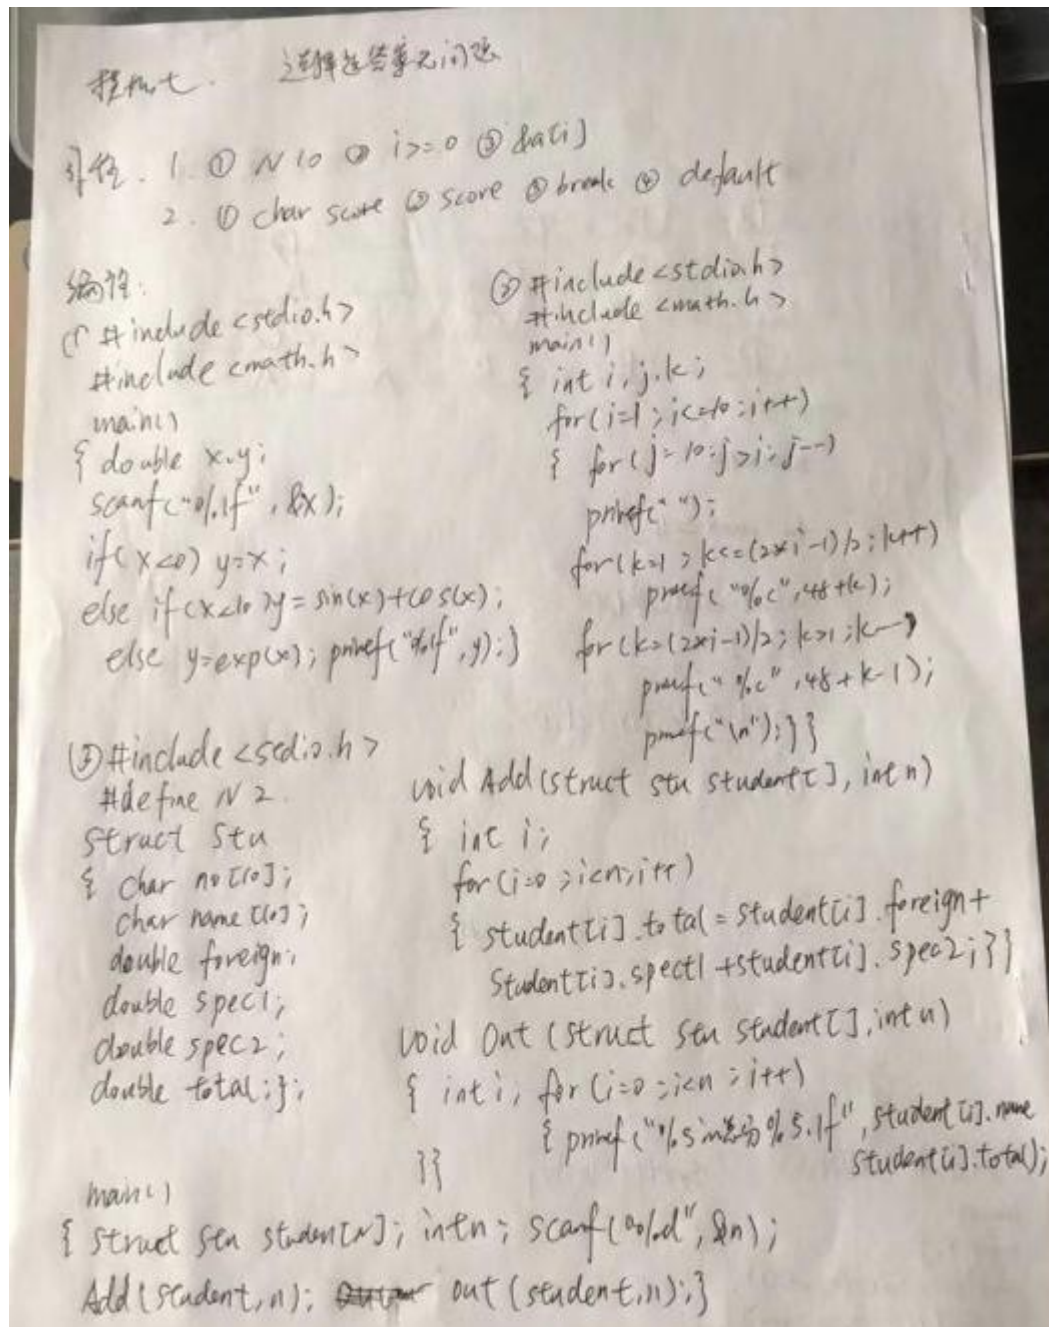 程都七. 选择题答案无问题
习题. 1. ① N 10 ② i>=0 ③ &a[i]
2. ① char score ② score ③ break ④ default
编程:
(1) #include <stdio.h>
#include <math.h>
main()
{ double x,y;
scanf("%lf", &x);
if(x<0) y=x;
else if(x<10)y=sin(x)+cos(x);
else y=exp(x); printf("%lf",y);}
② #include <stdio.h>
#include <math.h>
main()
{ int i,j,k;
for(i=1;i<=10;i++)
{ for(j=10;j>i;j--)
printf(" ");
for(k=1;k<=(2*i-1)/2;k++)
printf("%c",48+k);
for(k=(2*i-1)/2;k>1;k--)
printf("%c",48+k-1);
printf("\n");}}
③ #include <stdio.h>
#define N 2.
struct stu
{ char no[10];
char name[10];
double foreign;
double spec1;
double spec2;
double total;};
void Add(struct stu student[], int n)
{ int i;
for(i=0;i<n;i++)
{ student[i].total=student[i].foreign+
student[i].spect1+student[i].spec2;}}
void Out (struct stu student[],int n)
{ int i, for(i=0;i<n;i++)
{ printf("%s\n总分%5.1f",student[i].name
student[i].total);
}}
main()
{ struct stu student[N]; int n; scanf("%d",&n);
Add(student,n); out(student,n);}